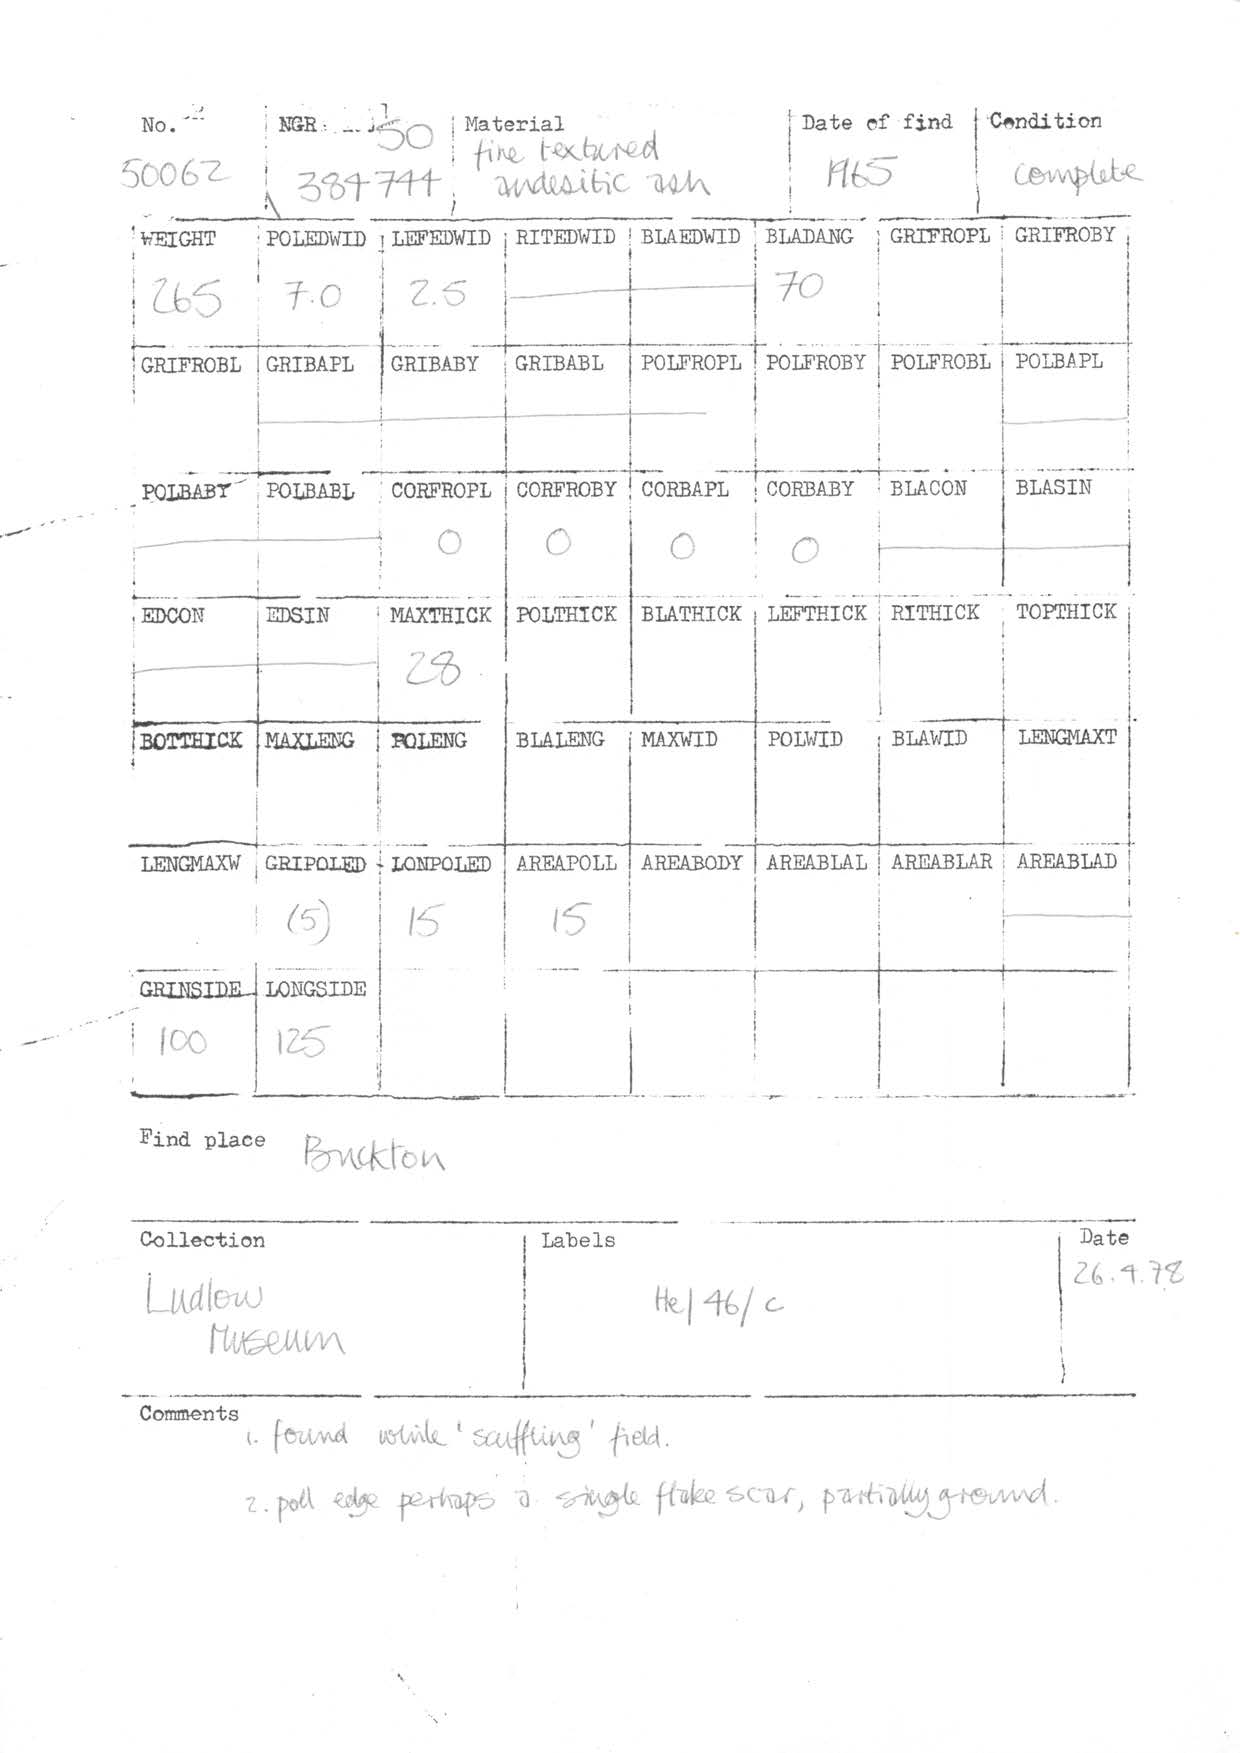 No. NGR: SO Material Date of find Condition
50062 384744 fine textured andesitic ash 1965 complete
WEIGHT POLEDWID LEFEDWID RITEDWID BLAEDWID BLADANG GRIFROPL GRIFROBY
265 7.0 2.5 70
GRIFROBL GRIBAPL GRIBABY GRIBABL POLFROPL POLFROBY POLFROBL POLBAPL
POLBABY POLBABL CORFROPL CORFROBY CORBAPL CORBABY BLACON BLASIN
0 0 0 0
EDCON EDSIN MAXTHICK POLTHICK BLATHICK LEFTHICK RITHICK TOPTHICK
28
BOTTHICK MAXLENG POLENG BLALENG MAXWID POLWID BLAWID LENGMAXT
LENGMAXW GRIPOLED LONPOLED AREAPOLL AREABODY AREABLAL AREABLAR AREABLAD
(5) 15 15
GRINSIDE LONGSIDE
100 125
Find place Buckton
Collection Labels Date
Ludlow He/46/c 26.4.78
Museum
Comments
1. found while 'scuffling' field.
2. poll edge perhaps a single flake scar, partially ground.